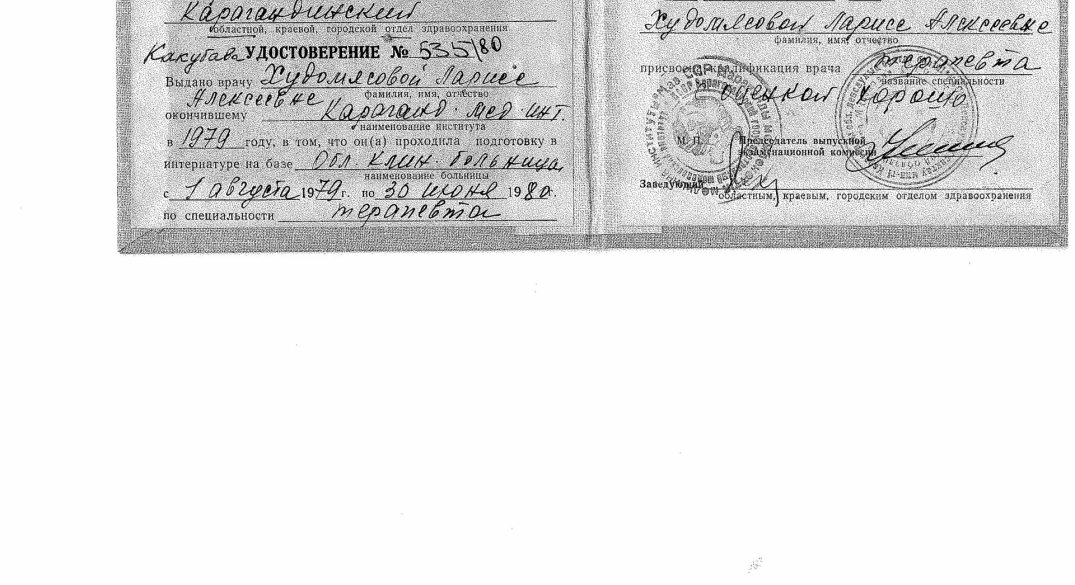 Карагандинский
областной, краевой, городской отдел здравоохранения
УДОСТОВЕРЕНИЕ № 535/80
Выдано врачу Худомясовой Ларисе
Алексеевне
фамилия, имя, отчество
окончившему Караганд. мед. инт.
наименование института
в 1979 году, в том, что он(а) проходила подготовку в
интернатуре на базе Обл. клин. больница,
наименование больницы
с 1 августа 1979 г. по 30 июня 1980 г.
по специальности терапевта
Худомясовой Ларисе Алексеевне
фамилия, имя, отчество
присвоена квалификация врача терапевта
название специальности
с оценкой хорошо
М. П. Председатель выпускной
экзаменационной комиссии
Заведующий
областным, краевым, городским отделом здравоохранения